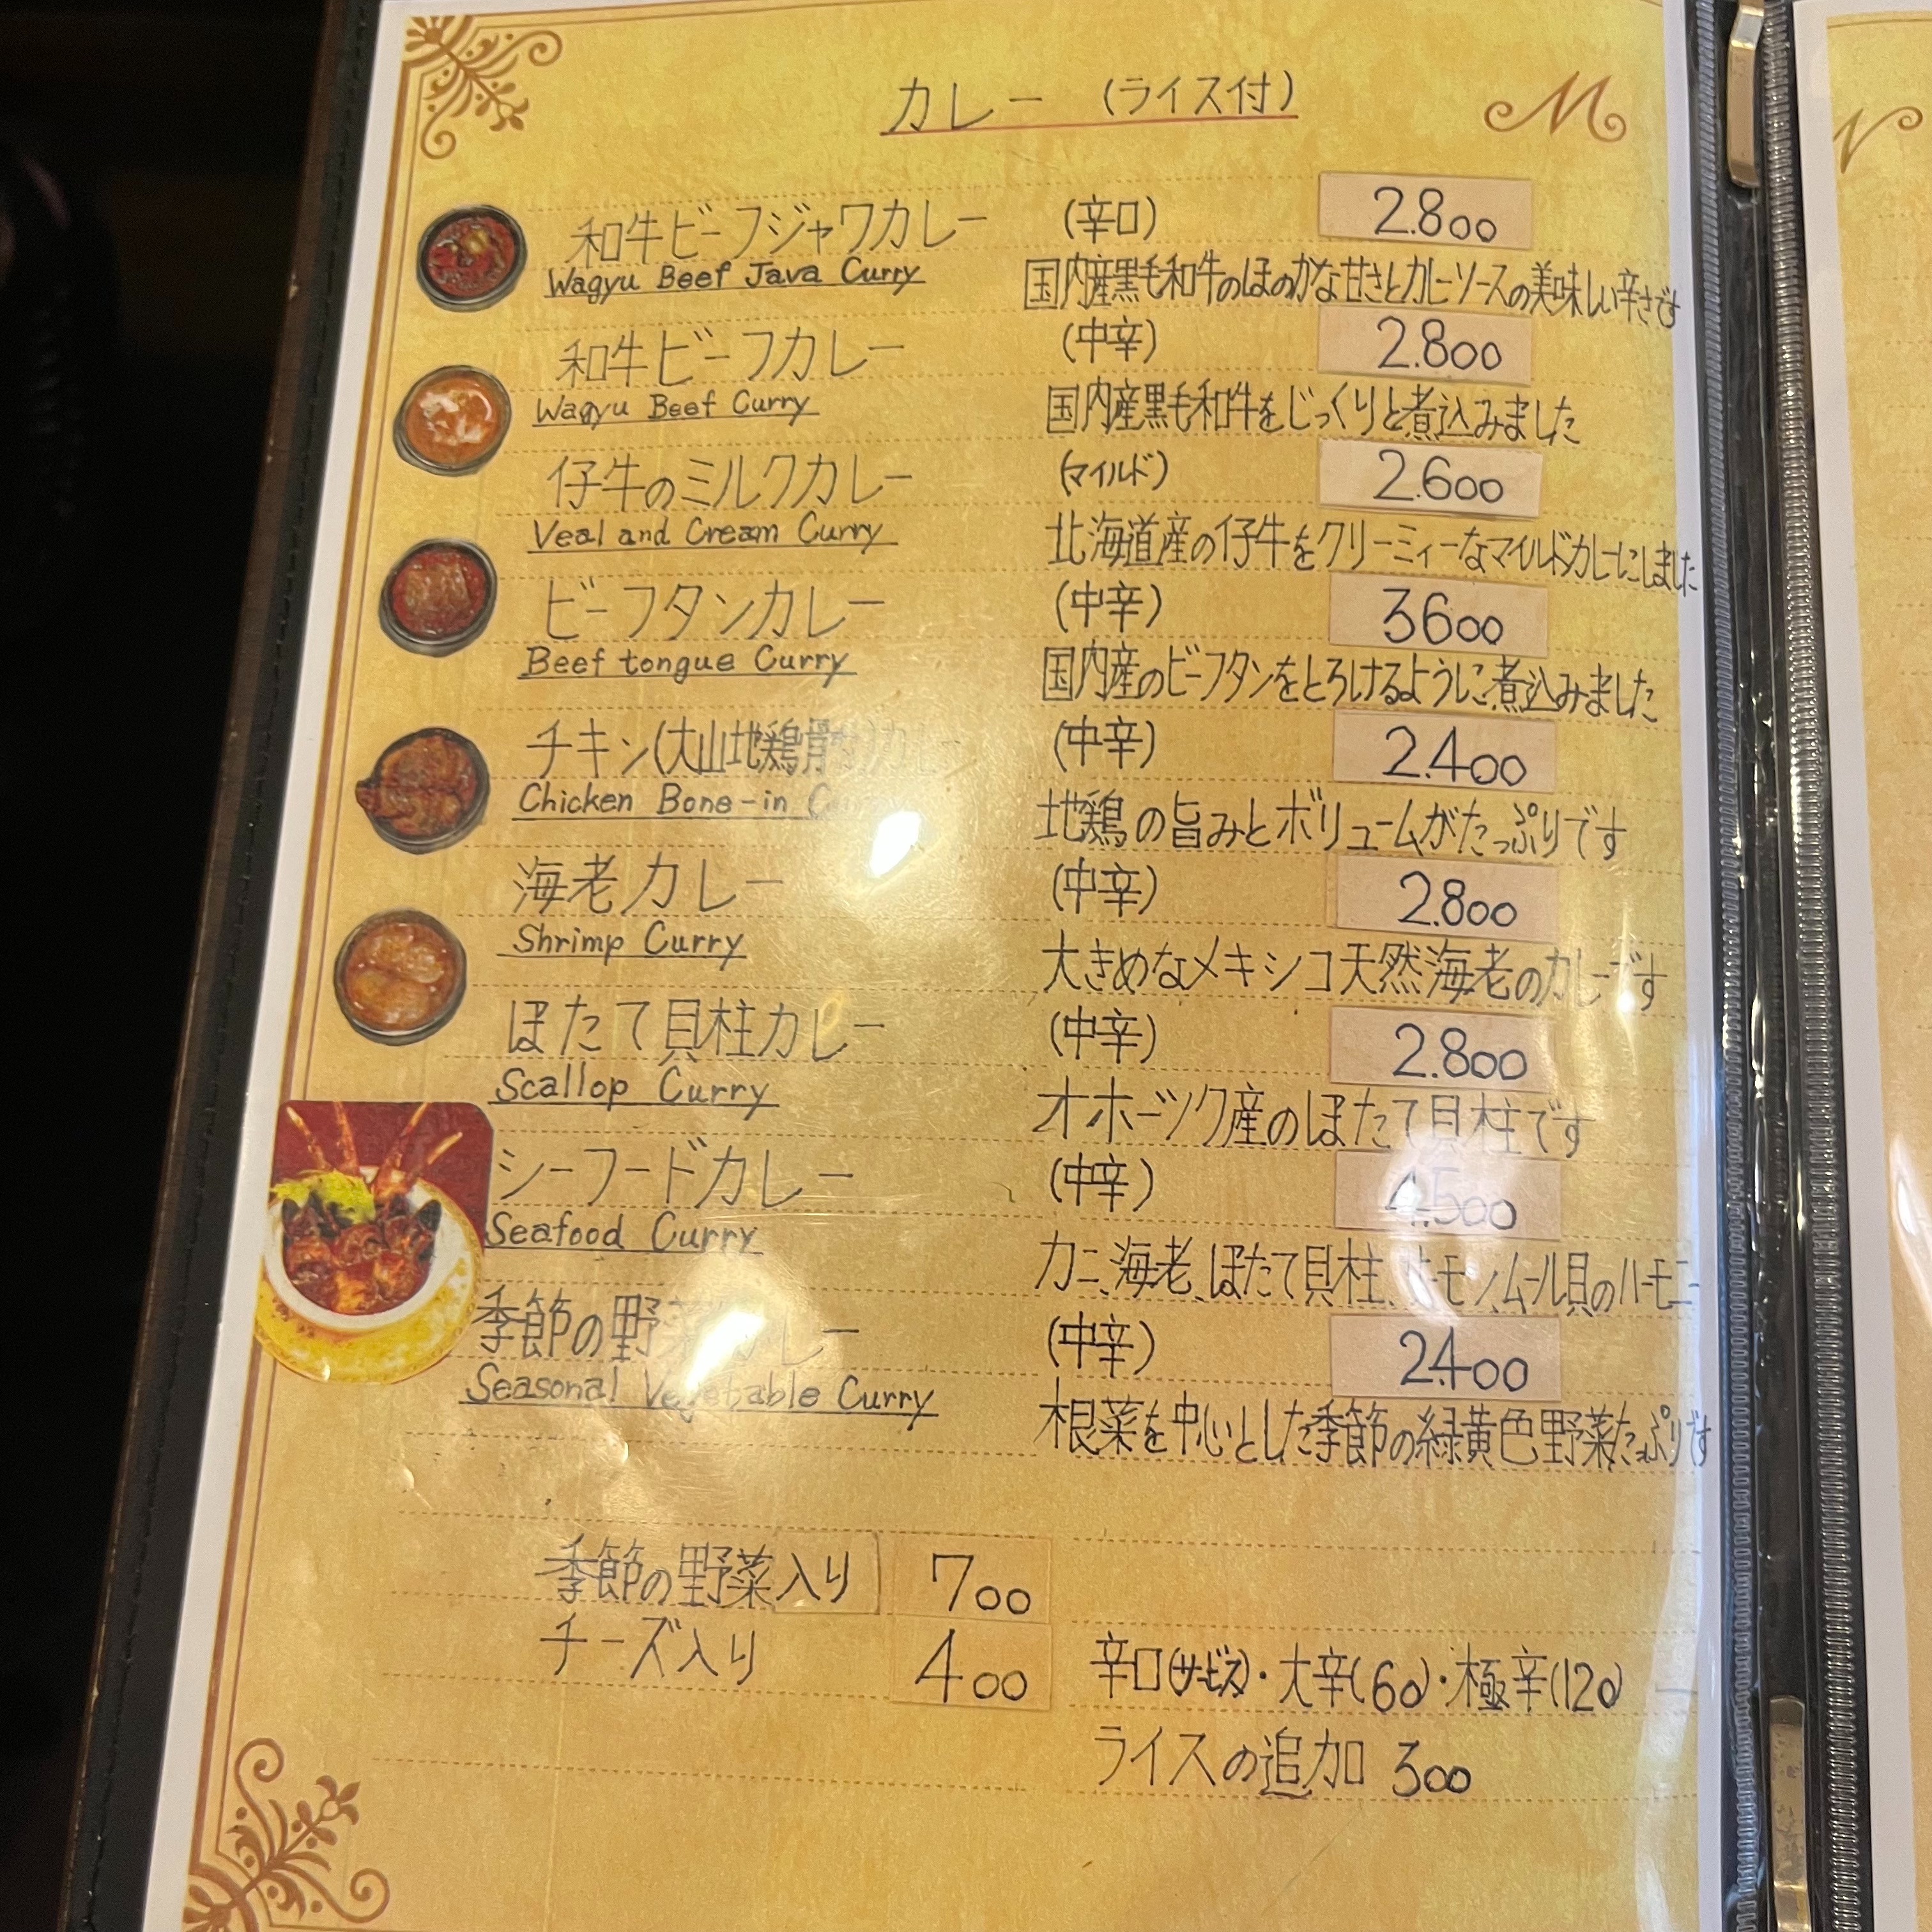 カレー (ライス付)
M
和牛ビーフジャワカレー (辛口) 2.800
Wagyu Beef Java Curry 国内産黒毛和牛のほのかな甘さとカレーソースの美味しい辛さです
和牛ビーフカレー (中辛) 2.800
Wagyu Beef Curry 国内産黒毛和牛をじっくりと煮込みました
仔牛のミルクカレー (マイルド) 2.600
Veal and Cream Curry 北海道産の仔牛をクリーミィーなマイルドカレーにしました
ビーフタンカレー (中辛) 3600
Beef tongue Curry 国内産のビーフタンをとろけるように煮込みました
チキン(大山地鶏骨付)カレー (中辛) 2.400
Chicken Bone-in Curry 地鶏の旨みとボリュームがたっぷりです
海老カレー (中辛) 2.800
Shrimp Curry 大きめなメキシコ天然海老のカレーです
ほたて貝柱カレー (中辛) 2.800
Scallop Curry オホーツク産のほたて貝柱です
シーフードカレー (中辛) 4.500
Seafood Curry カニ、海老、ほたて貝柱、サーモン、ムール貝のハーモニー
季節の野菜カレー (中辛) 2.400
Seasonal Vegetable Curry 根菜を中心とした季節の緑黄色野菜たっぷりです
季節の野菜入り 700
チーズ入り 400 辛口(サービス)・大辛(60)・極辛(120)
ライスの追加 300